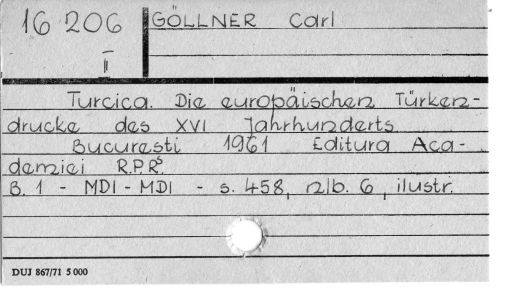 16 206 GÖLLNER Carl
I
Turcica. Die europäischen Türken-
drucke des XVI Jahrhunderts
Bucuresti 1961 Editura Aca-
demiei R.P.R.
B. 1 - MDI - MDI - s. 458, nlb. 6, ilustr.
DUJ 867/71 5 000